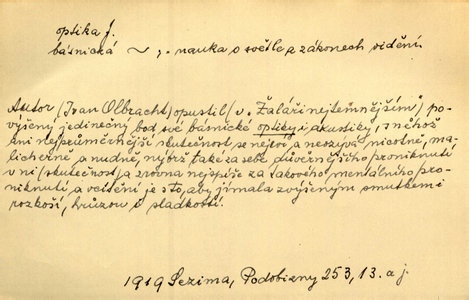 optika f.
básnická ~ ,. nauka o světle a zákonech vidění.
Autor (Ivan Olbracht) opustil (v „Žaláři nejtemnějším“) po-
výšený jedinečný bod své básnické optiky i akustiky, s něhož
ani nejprůměrnější skutečnost se nejeví a neozývá nicotně, ma-
licherně a nudně, nýbrž také za sebe důvěrnějšího proniknutí
v ni (skutečnost) a zrovna nejspíše za takového mentálního pro-
niknutí a vcítění je s to, aby jímala zvýšeným smutkem i
rozkoší, hrůzou i sladkostí.
1919 Sezima, Podobizny 253, 13. a j.